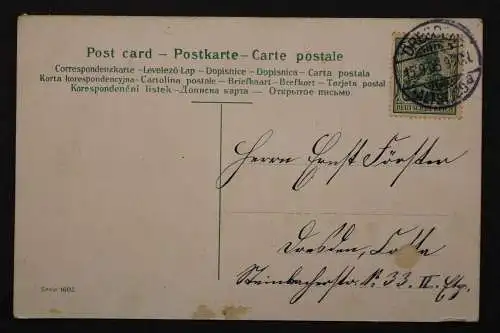 Post card – Postkarte – Carte postale
Correspondenzkarte – Levelező Lap – Dopisnice – Dopisnica – Carta postala
Karta korespondencyjna – Cartolina postale – Briefkaart – Brefkort – Tarjeta postal
Korespondenční listek – Дописна карта – Открытое письмо
DRESDEN
DEUTSCHES REICH
Herrn Ernst Försten
Dresden, Cotta
Steinbacherstr. No. 33. II. Etg.
Serie 1602